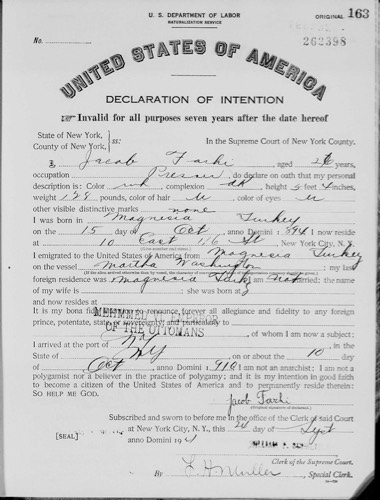 U. S. DEPARTMENT OF LABOR
NATURALIZATION SERVICE
ORIGINAL 163
No.
262398
UNITED STATES OF AMERICA
DECLARATION OF INTENTION
Invalid for all purposes seven years after the date hereof
State of New York,
County of New York, ss: In the Supreme Court of New York County.
I, Jacob Farhi aged years,
occupation Presser, do declare on oath that my personal
description is: Color wh, complexion dk, height 5 feet 4 inches,
weight 128 pounds, color of hair, color of eyes
other visible distinctive marks none
I was born in Magnesia Turkey
on the 15 day of Oct, anno Domini 1894 I now reside
at 10 East 116 St, New York City, N. Y.
(Give number and street.)
I emigrated to the United States of America from Magnesia Turkey
on the vessel Martha Washington; my last
(If the alien arrived otherwise than by vessel, the character of conveyance or name of transportation company should be given.)
foreign residence was Magnesia Turk
of my wife is; she was born at
and now resides at
It is my bona fide intention to renounce forever all allegiance and fidelity to any foreign
prince, potentate, state, or sovereignty, and particularly to
MEHMMED V, EMPEROR
OF THE OTTOMANS, of whom I am now a subject;
I arrived at the port of NY, in the
State of NY, on or about the 10 day
of Oct, anno Domini 1910; I am not an anarchist; I am not a
polygamist nor a believer in the practice of polygamy; and it is my intention in good faith
to become a citizen of the United States of America and to permanently reside therein:
SO HELP ME GOD.
Jacob Farhi
(Original signature of declarant.)
Subscribed and sworn to before me in the office of the Clerk of said Court
[SEAL] at New York City, N. Y., this 24 day of Sept
anno Domini 191
Clerk of the Supreme Court.
By, Special Clerk.